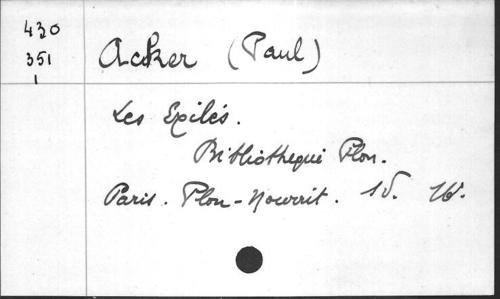 430
351
1
Acker (Paul)
Les Exilés.
Bibliotheque Plon.
Paris. Plon-Nourrit. sd. 16°.